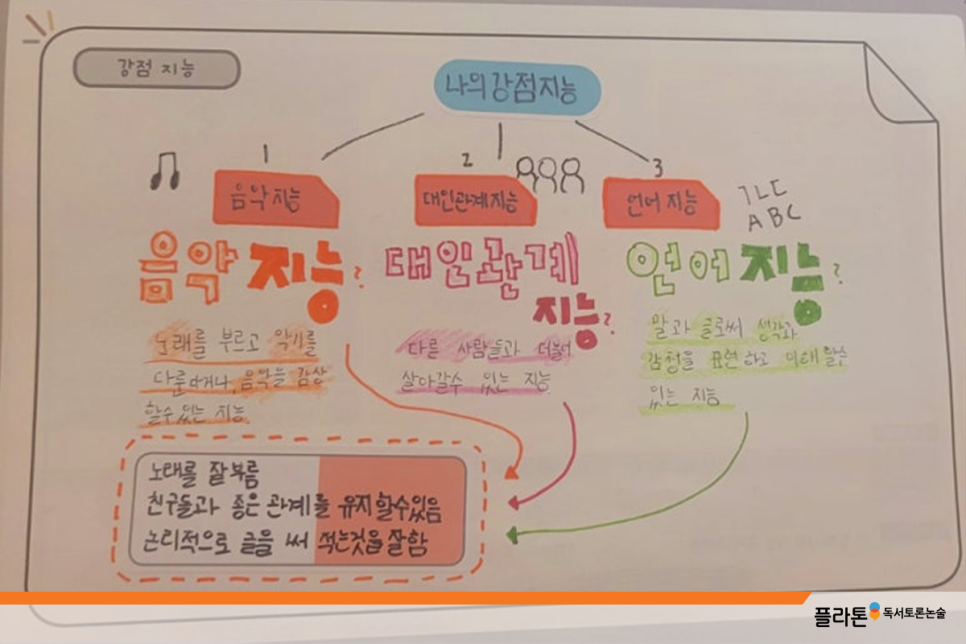 강점 지능
나의 강점지능
1
2
3
음악지능
대인관계지능
언어 지능
ㄱㄴㄷ
ABC
음악 지능?
대인관계
지능?
언어 지능?
노래를 부르고 악기를
다룬다거나, 음악을 감상
할수있는 지능
다른 사람들과 더불어
살아갈수 있는 지능
말과 글로써 생각과
감정을 표현하고 이해할수
있는 지능
노래를 잘부름
친구들과 좋은 관계를 유지할수있음
논리적으로 글을 써 적는것을 잘함
플라톤 독서토론논술